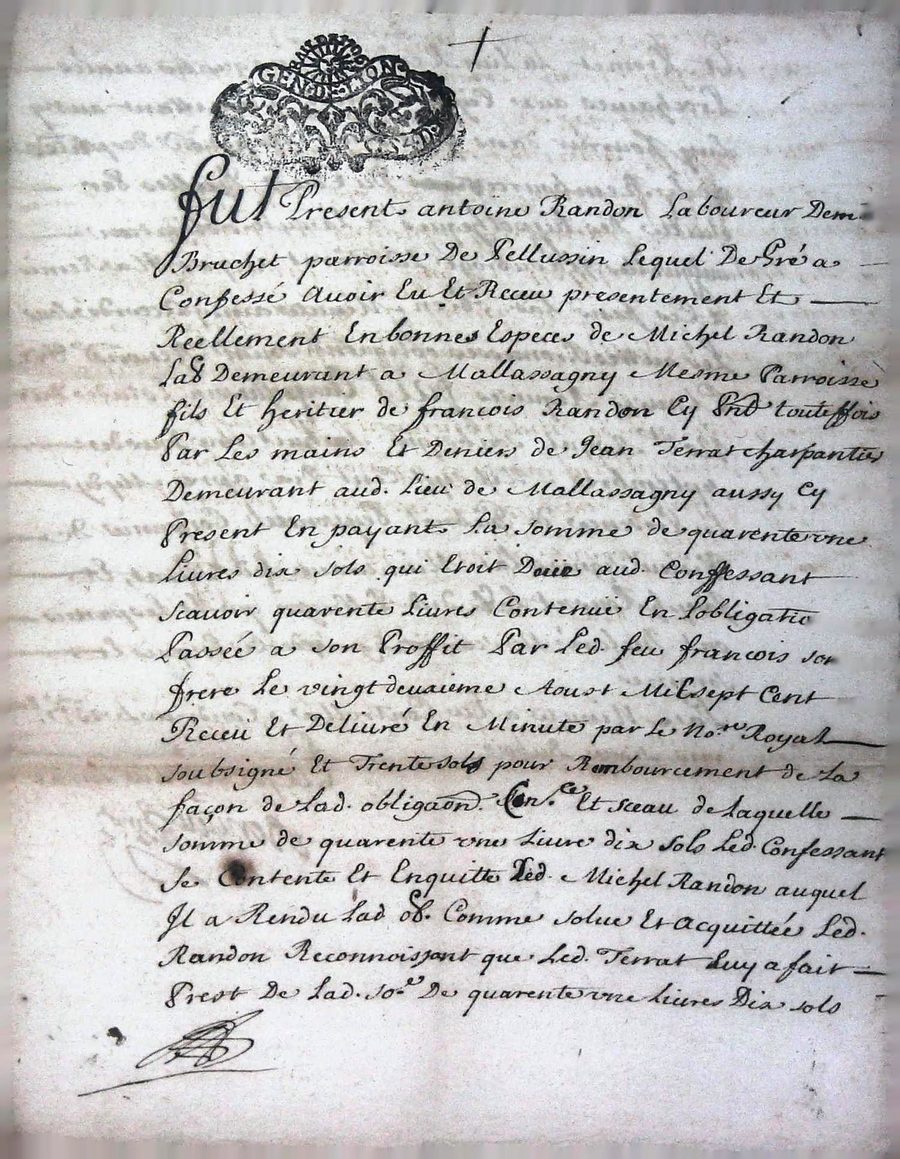 GEN. DE LION
fut Present antoine Randon Laboureur Dem
Bruchet parroisse De Pellussin Lequel De Gré a
Confessé Avoir Eu Et Receu presentement Et
Reellement En bonnes Especes de Michel Randon
Lab Demeurant a Mallassagny Mesme Parroisse
fils Et heritier de francois Randon Cy pnt touteffois
Par Les mains Et Deniers de Jean Terrat charpantier
Demeurant aud. Lieu de Mallassagny aussy Cy
Present En payant La somme de quarente vne
Livres dix sols qui Etoit Deüe aud. Conffessant
scavoir quarente Livres Contenüe En Lobligatio
Passée a son Proffit Par Led. feu francois son
frere Le vingt deuxieme Aoust Mil sept Cent
Receu Et Delivré En Minute par Le No.re Royal
soubsigné Et Trente sols pour Rembourcement de La
façon de Lad. obligaon. Con.ce Et sceau de Laquelle
somme de quarente vne Livre dix sols Led. Confessant
se Contente Et Enquitte Led. Michel Randon auquel
Il a Rendu Lad ob. Comme solue Et Acquittée Led.
Randon Reconnoissant que Led. Terrat Luy a fait
Prest De Lad. so.e De quarente vne Livres Dix sols